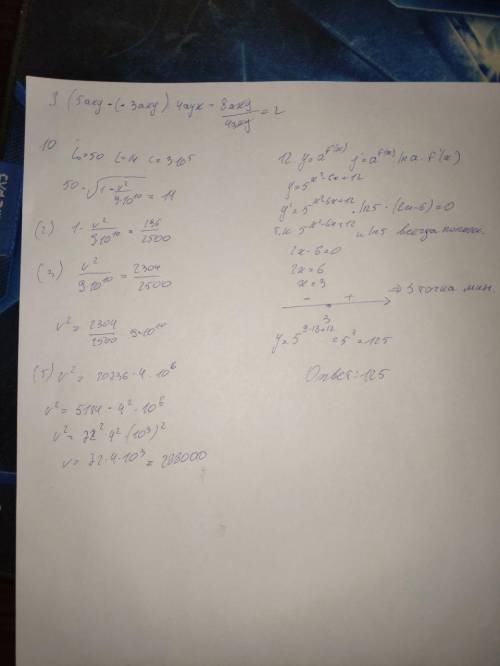 9 (5axy-(-3axy)) 4ayx = 8axy/4axy = 2
10
L₀=50 L=14 c=3·10⁵
50·√(1-v²/9·10¹⁰) = 14
(2) 1-v²/9·10¹⁰ = 196/2500
(3) v²/9·10¹⁰ = 2304/2500
v² = 2304/2500 9·10¹⁰
(5) v² = 20736·4·10⁶
v² = 5184·4²·10⁶
v² = 72² 4² (10³)²
v = 72·4·10³ = 288000
12. y=a^f(x) y'=a^f(x) lna·f'(x)
y=5^x²-6x+12
y'=5^x²-6x+12 · ln5 · (2x-6)=0
т.к 5^x²-6x+12 и ln5 всегда полож.
2x-6=0
2x=6
x=3
- +
3
⇒ 3 точка мин.
y=5^9-18+12 = 5³ = 125
Ответ: 125